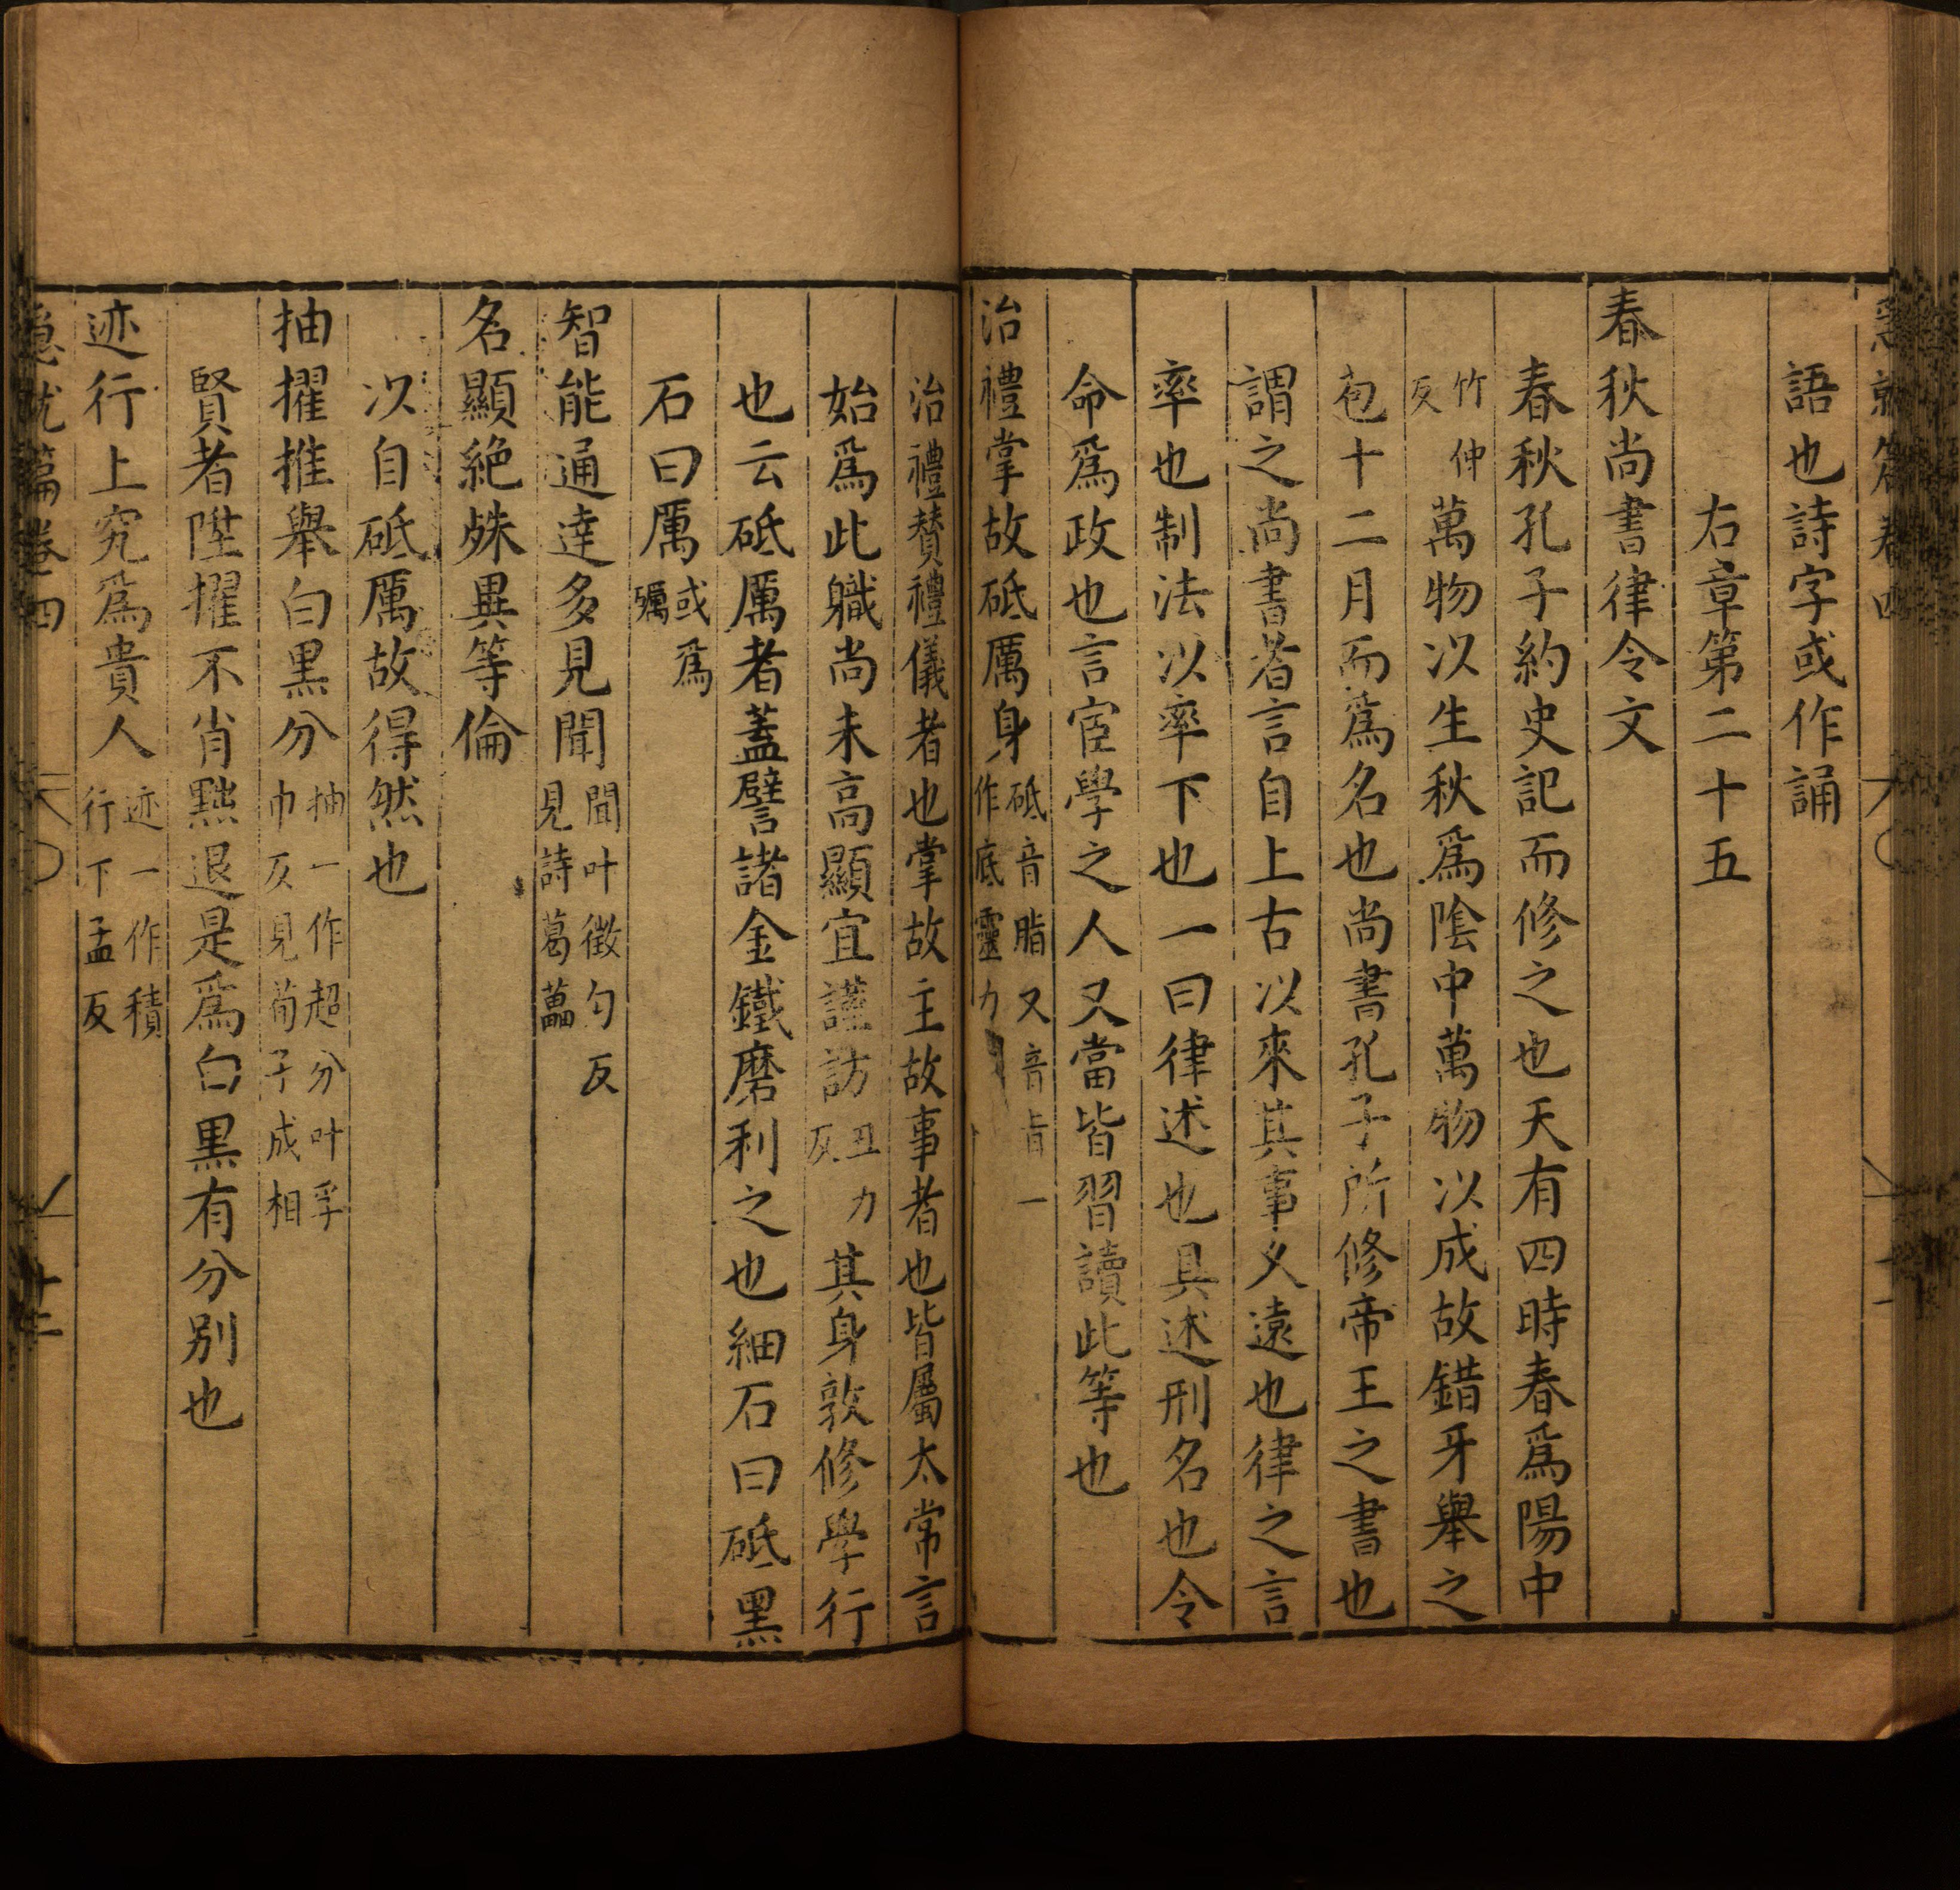 急就篇卷四
語也詩字或作誦
右章第二十五
春秋尚書律令文
春秋孔子約史記而修之也天有四時春爲陽中
竹仲反萬物以生秋爲陰中萬物以成故錯牙舉之
苞十二月而爲名也尚書孔子所修帝王之書也
謂之尚書者言自上古以來其事久遠也律之言
率也制法以率下也一曰律述也具述刑名也令
命爲政也言宦學之人又當皆習讀此等也
治禮掌故砥厲身砥音脂又音旨一作底靈力
治禮賛禮儀者也掌故主故事者也皆屬太常言
始爲此職尚未高顯宜謹訪丑力反其身敦修學行
也云砥厲者蓋譬諸金鐵磨利之也細石曰砥黑
石曰厲或爲礪
智能通達多見聞聞叶微勻反見詩葛藟
名顯絶殊異等倫
以自砥厲故得然也
抽擢推舉白黒分抽一作超分叶孚巾反見荀子成相
賢者陞擢不肖黜退是爲白黒有分别也
迹行上究爲貴人迹一作積行下孟反
急就篇卷四